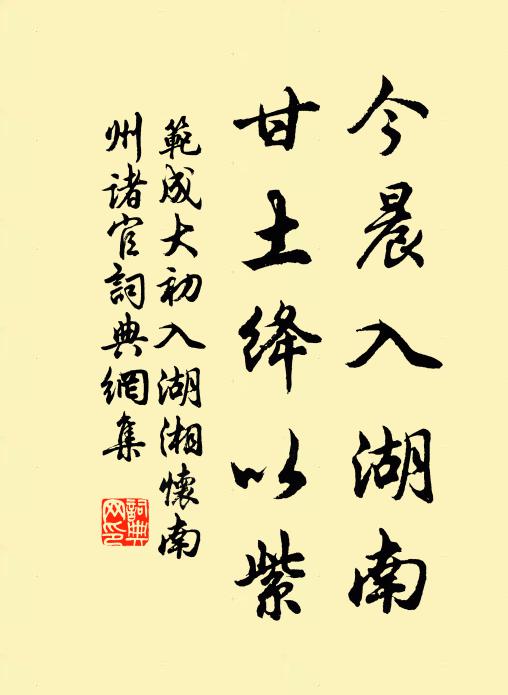 今晨入湖南
甘土绛以紫
範成大初入湖湘懷南
州诸官詞典網集
詞典
网印